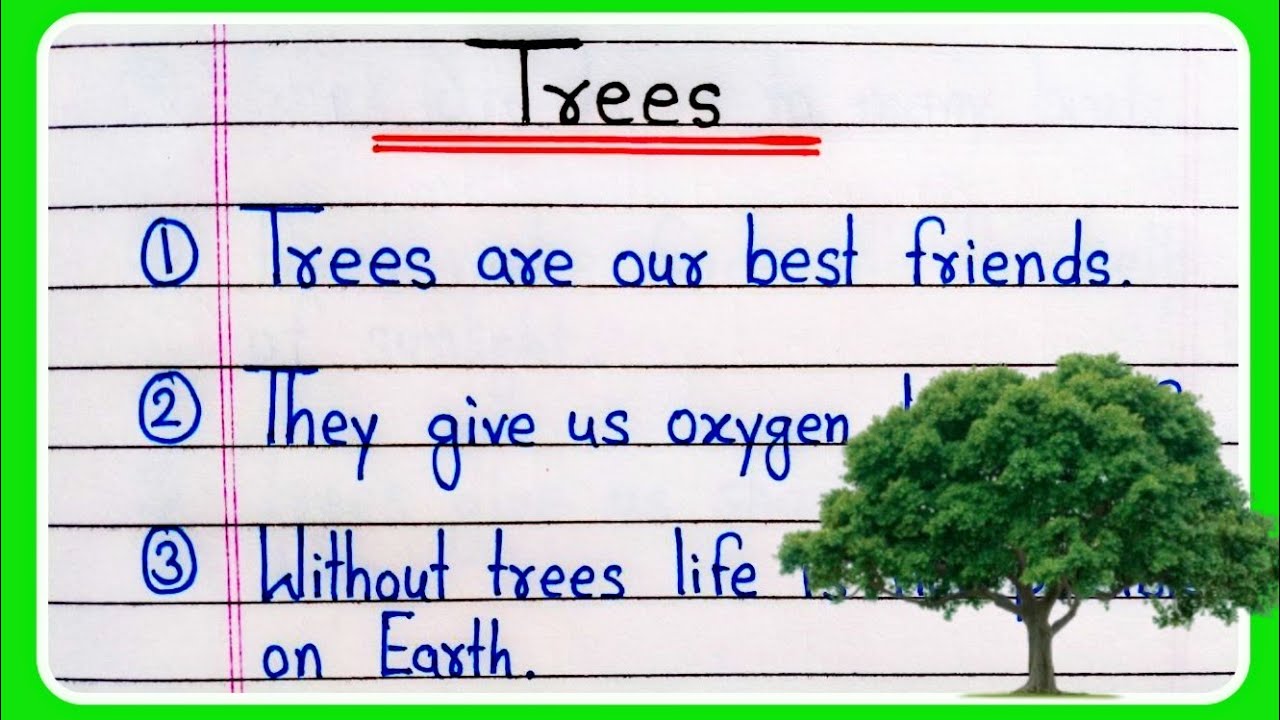 Trees
① Trees are our best friends.
② They give us oxygen
③ Without trees life is
on Earth.